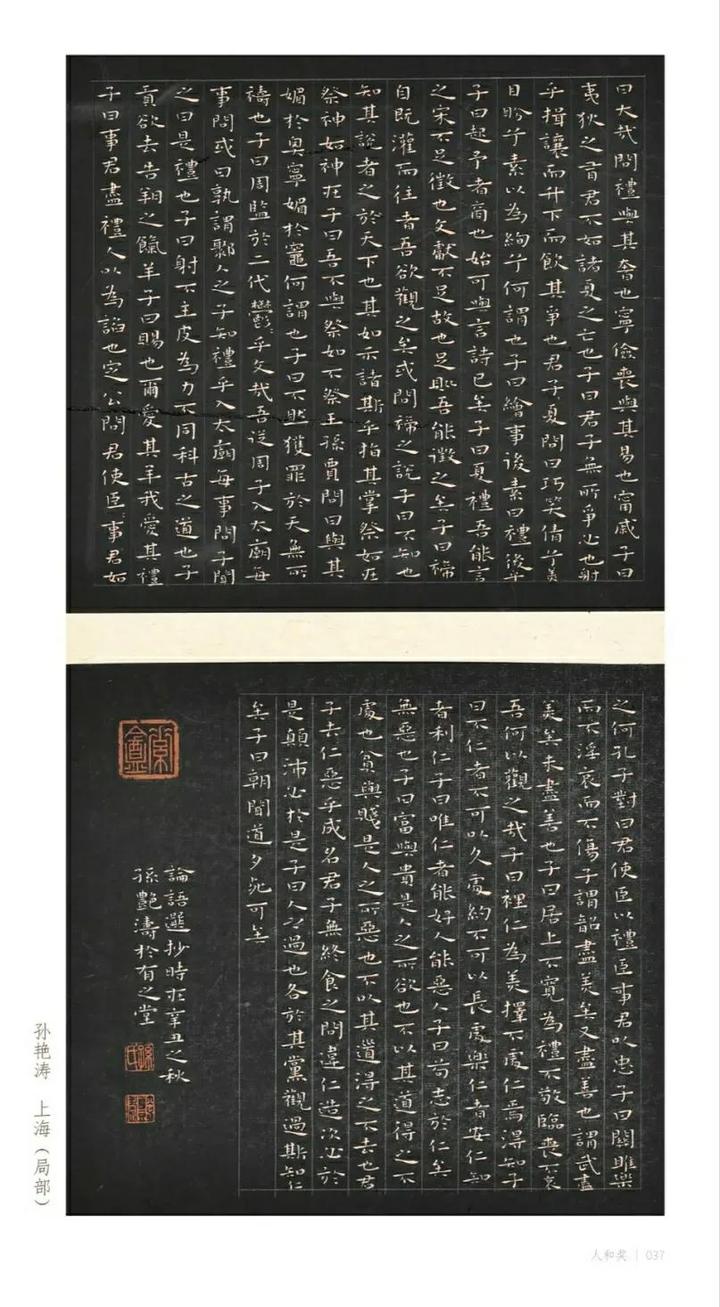 曰大哉問禮與其奢也寧儉喪與其易也甯戚子曰
夷狄之有君不如諸夏之亡也子曰君子無所爭必也射
乎揖讓而升下而飲其爭也君子夏問曰巧笑倩兮美
目盼兮素以為絢兮何謂也子曰繪事後素曰禮後乎
子曰起予者商也始可與言詩已矣子曰夏禮吾能言
之宋不足徵也文獻不足故也足則吾能徵之矣子曰禘
自既灌而往者吾欲觀之矣或問禘之說子曰不知也
知其說者之於天下也其如示諸斯乎指其掌祭如在
祭神如神在子曰吾不與祭如不祭王孫賈問曰與其
媚於奧寧媚於竈何謂也子曰不然獲罪於天無所
禱也子曰周監於二代鬱乎文哉吾從周子入太廟每
事問或曰孰謂鄹人之子知禮乎入太廟每事問子聞
之曰是禮也子曰射不主皮為力不同科古之道也子
貢欲去告朔之餼羊子曰賜也爾愛其羊我愛其禮
子曰事君盡禮人以為諂也定公問君使臣事君如
之何孔子對曰君使臣以禮臣事君以忠子曰關雎樂
而不淫哀而不傷子謂韶盡美矣又盡善也謂武盡
美矣未盡善也子曰居上不寬為禮不敬臨喪不哀
吾何以觀之哉子曰裡仁為美擇不處仁焉得知子
曰不仁者不可以久處約不可以長處樂仁者安仁知
者利仁子曰唯仁者能好人能惡人子曰苟志於仁矣
無惡也子曰富與貴是人之所欲也不以其道得之不
處也貧與賤是人之所惡也不以其道得之不去也君
子去仁惡乎成名君子無終食之間違仁造次必於
是顛沛必於是子曰人之過也各於其黨觀過斯知仁
矣子曰朝聞道夕死可矣
論語選抄時在辛丑之秋
孫艷濤於有之堂
孙艳涛 上海(局部)
人和奖 | 037